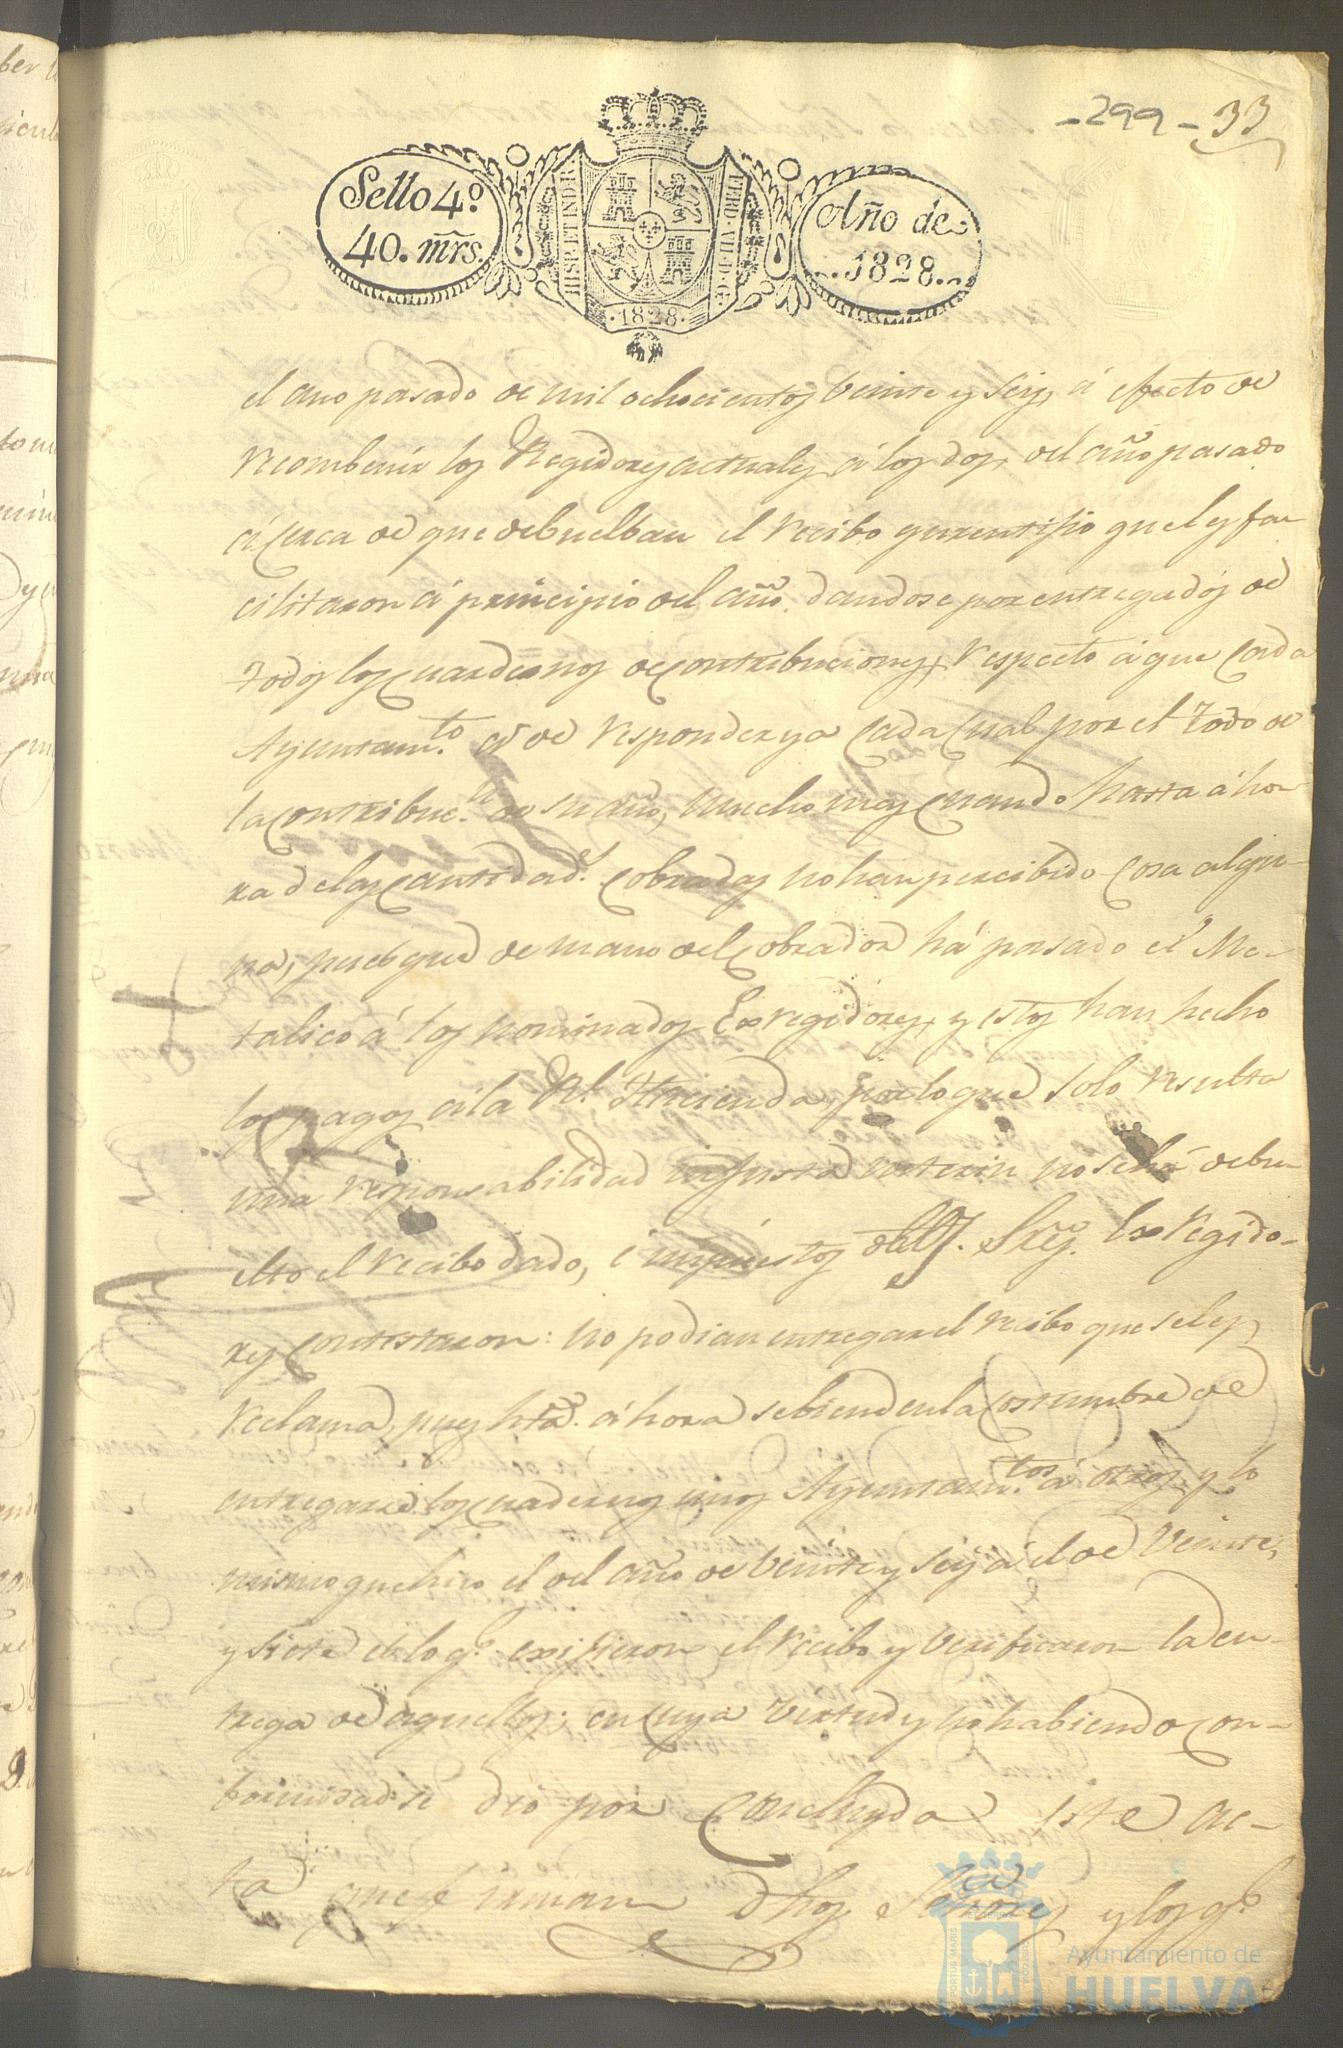 -299- 33
Sello 4º
40. mrs.
HISP. ET IND. R
FERD. VII. D. G.
1828
Año de
1828
el ano pasado de mil ochocientos Veinte y seis, á efecto de
recombenir los Regidores actuales á los dos, del año pasado
á cerca de que debuelban el recibo que les fa-
cilitaron á principio del año. dandose por entregados de
todos los cuadernos de contribuciones, respecto á que cada
Ayuntam.to á de responder ya cada cual por el todo de
la contribuc.n de su año, mucho mas cuando hasta áho-
ra de las cantidad.s cobradas no han percibido cosa algu-
na, pues que de mano del cobrador há pasado el Me-
talico á los nominados Exregidores, y estos han hecho
los pagos á la R.l Hacienda, por lo que solo resulta
una responsabilidad injusta interin no se há debu-
elto el recibo dado, é impuestos dhos. Sres. Exregido-
res contestaron: no podian entregar el recibo que se les
reclama, pues hta. áhora sebiendo en la costumbre de
entregarse los cuadernos unos Ayuntam.tos á otros, y lo
mismo que hizo el del año de Veinte y seis á el de Veinte,
y siete de lo q.e exijieron el recibo y Verificaron la en-
trega de aquellos; en cuya Virtud y no habiendo con-
formidad se dió por concluyda este ac-
ta que firman dhos Señores y los q.e
Ayuntamiento de
HUELVA